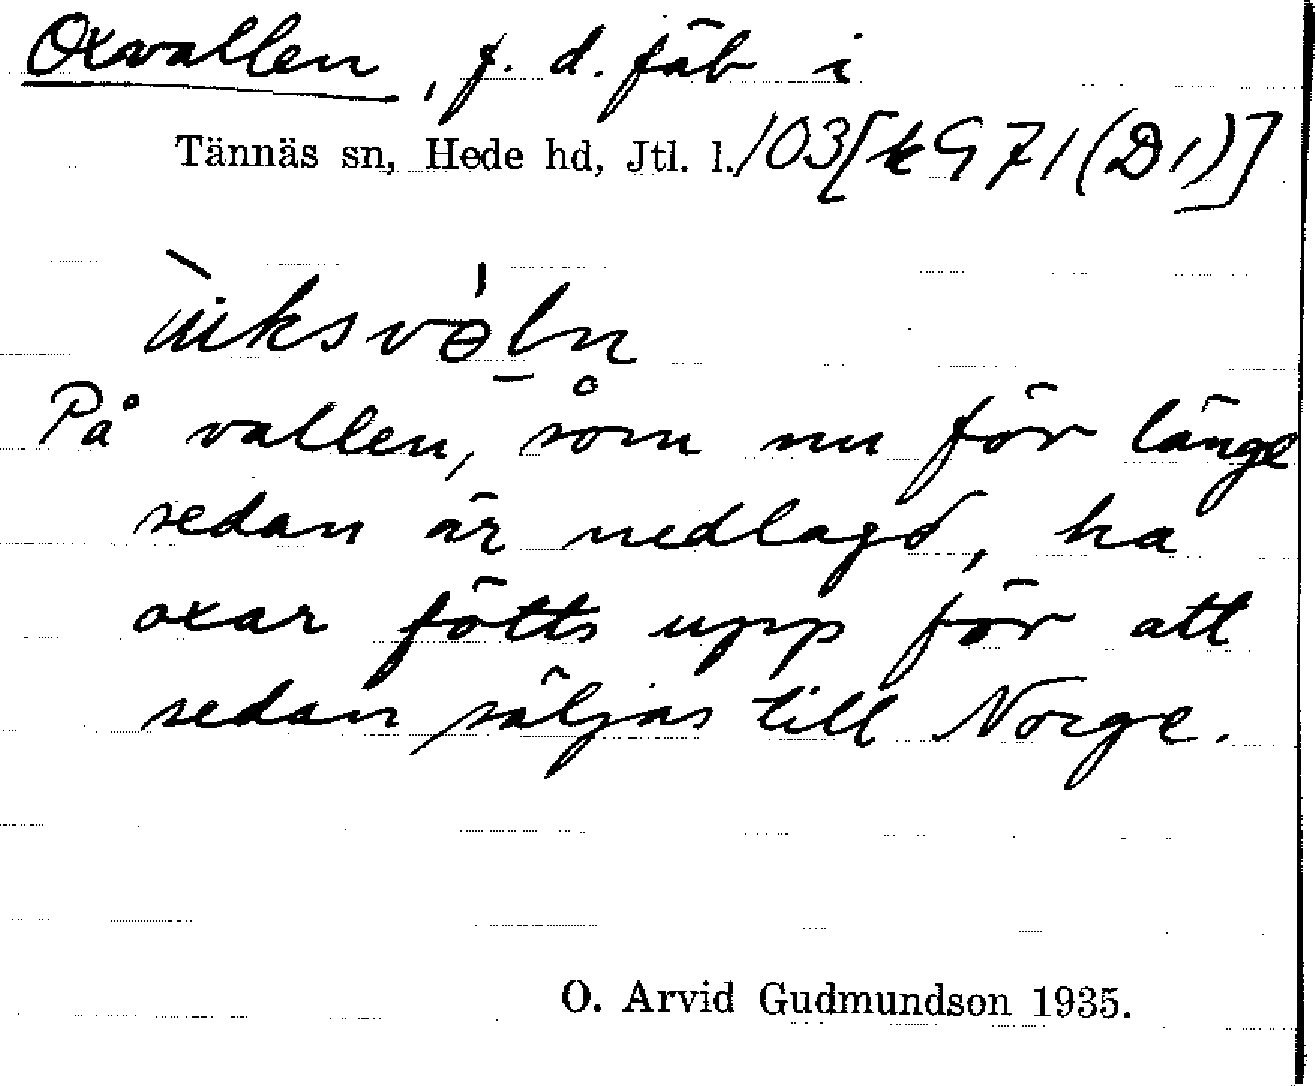 Oxvallen, f. d. fäb i
Tännäs sn, Hede hd, Jtl. l. /03[k G 71 (D1)]
På vallen, som nu för länge
sedan är nedlagd, ha
oxar fötts upp för att
sedan säljas till Norge.
O. Arvid Gudmundson 1935.